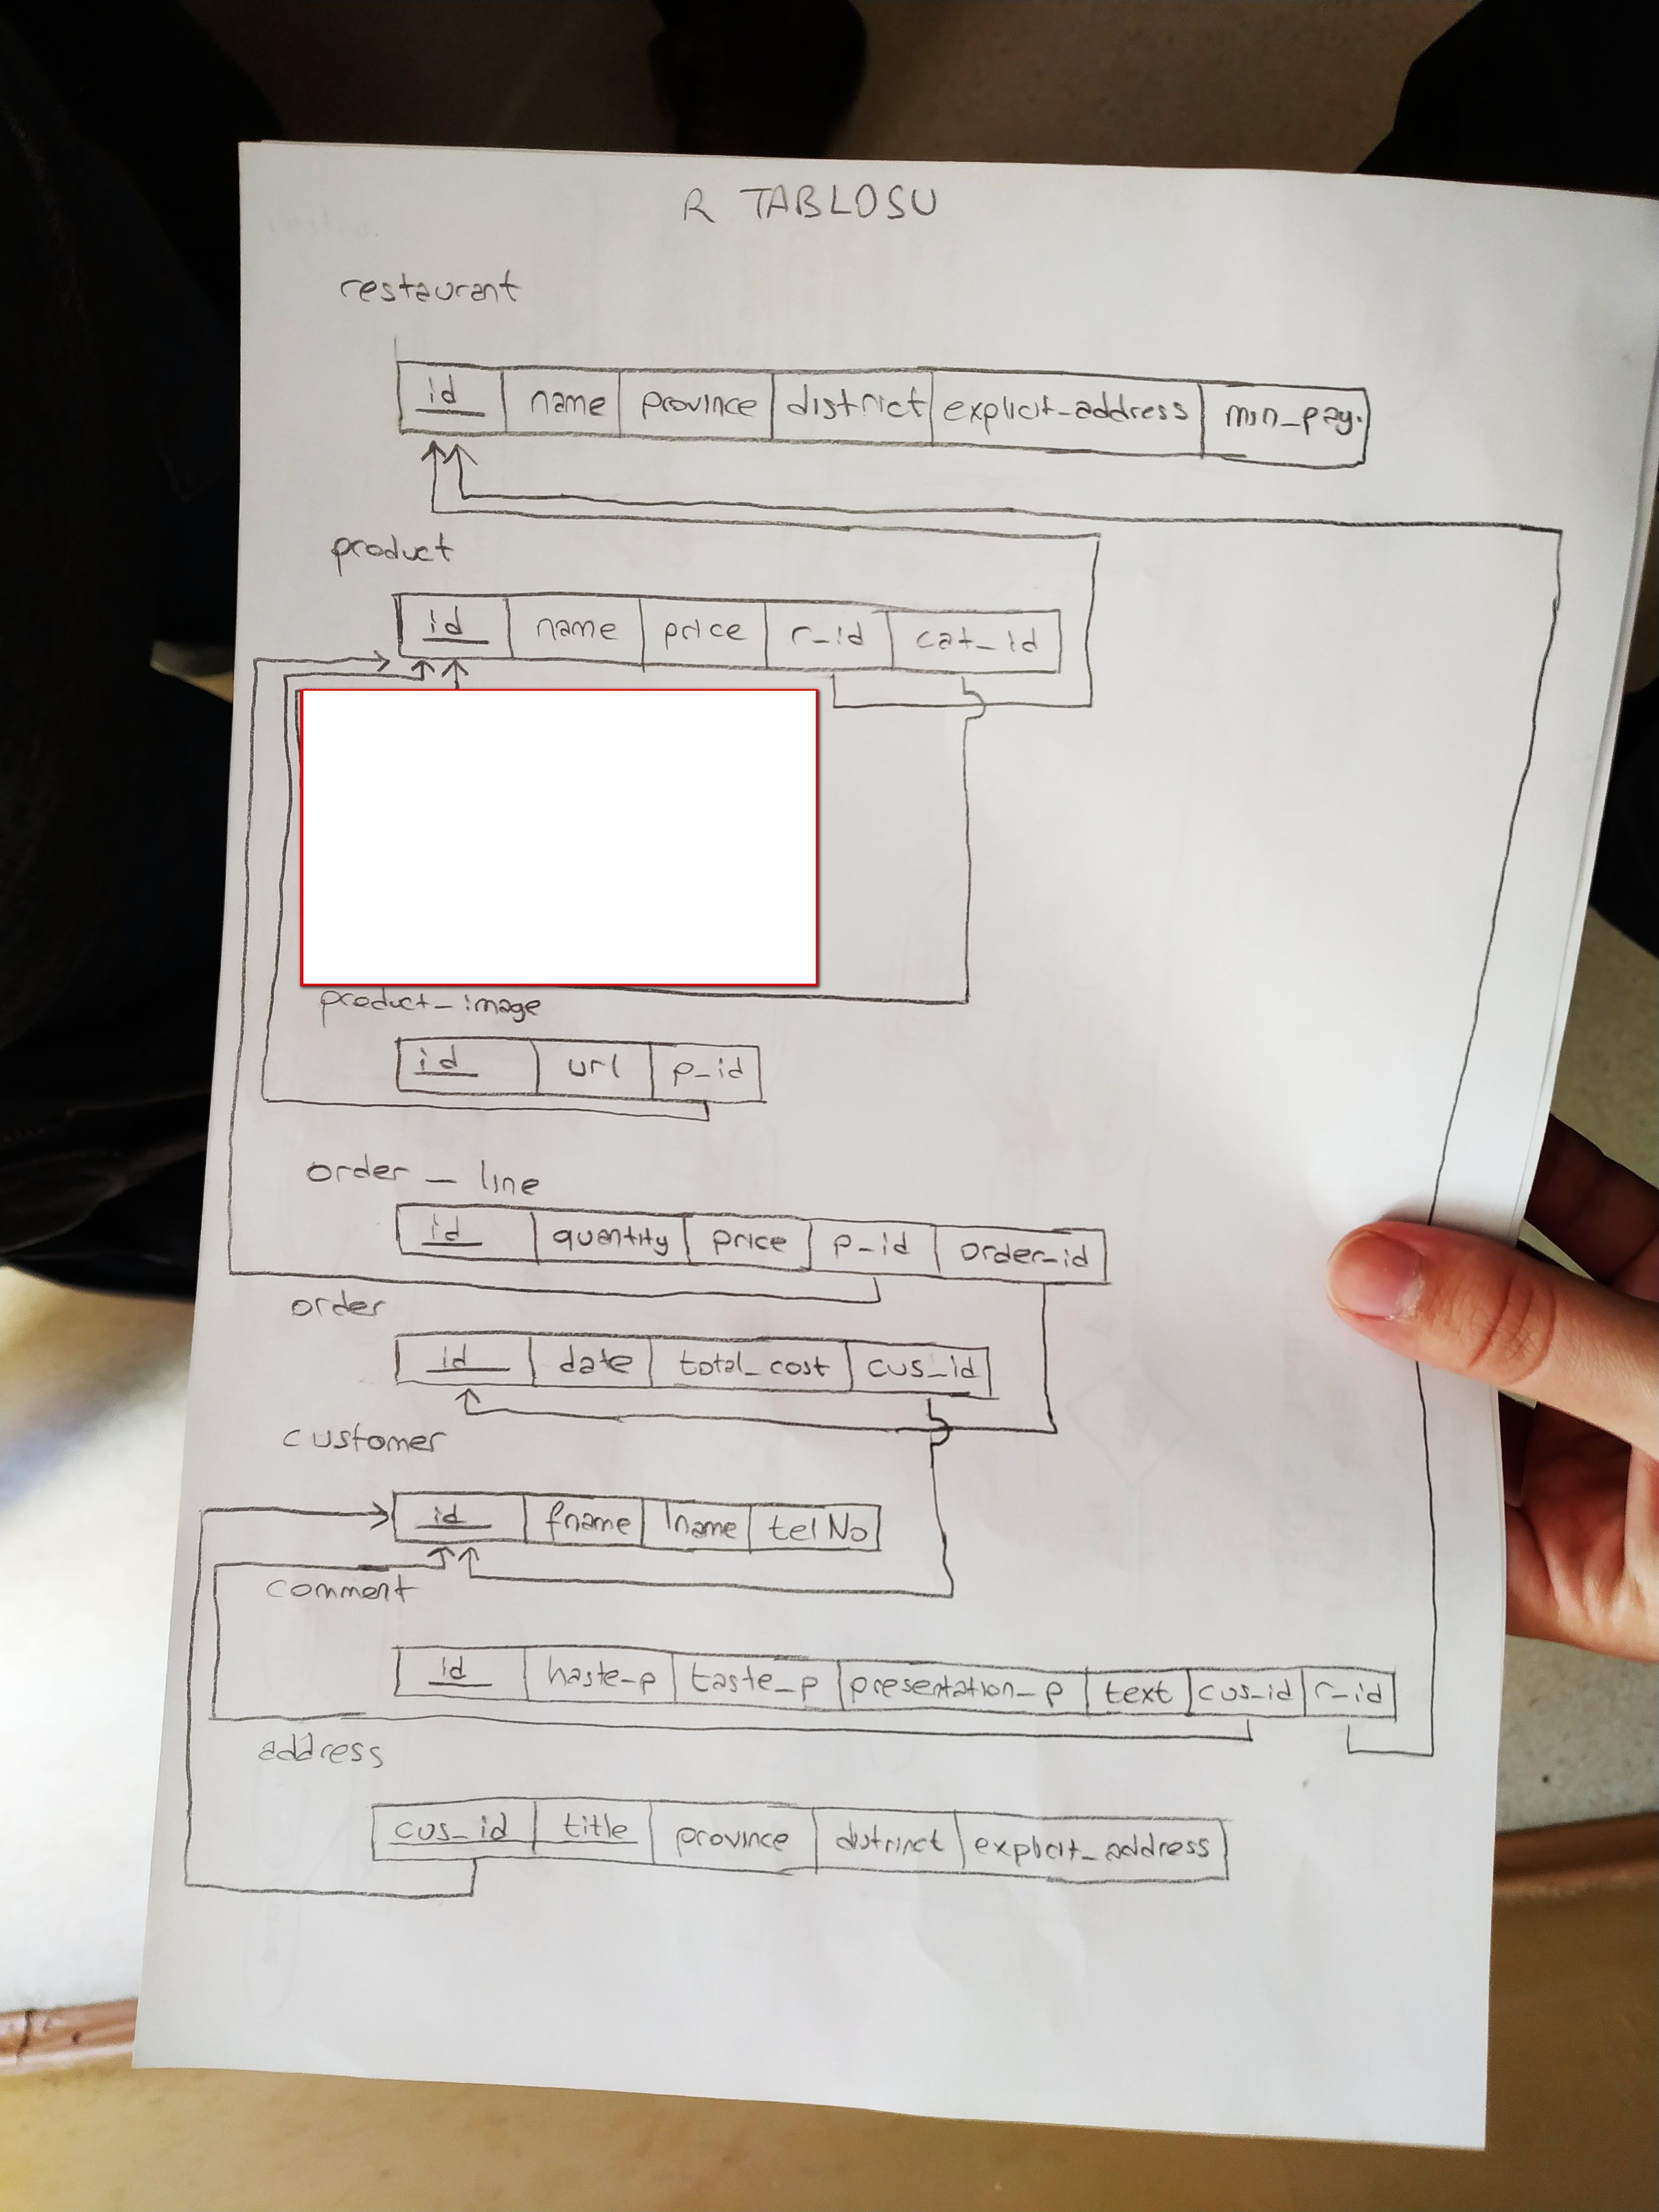 R TABLOSU
restaurant
id name province district explicit_address min_pay.
product
id name price r_id cat_id
product_image
id url p_id
order_line
id quantity price p_id order_id
order
id date total_cost cus_id
customer
id fname lname telNo
comment
id haste_p taste_p presentation_p text cus_id r_id
address
cus_id title province district explicit_address